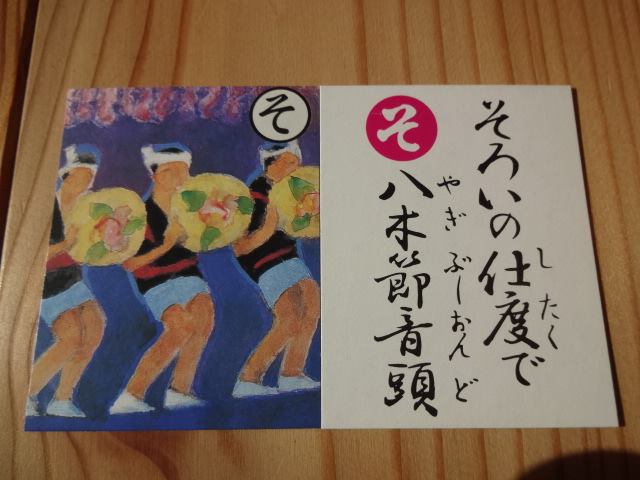 そ
そ
そろいの仕度で
したく
八木節音頭
やぎ ぶしおんど